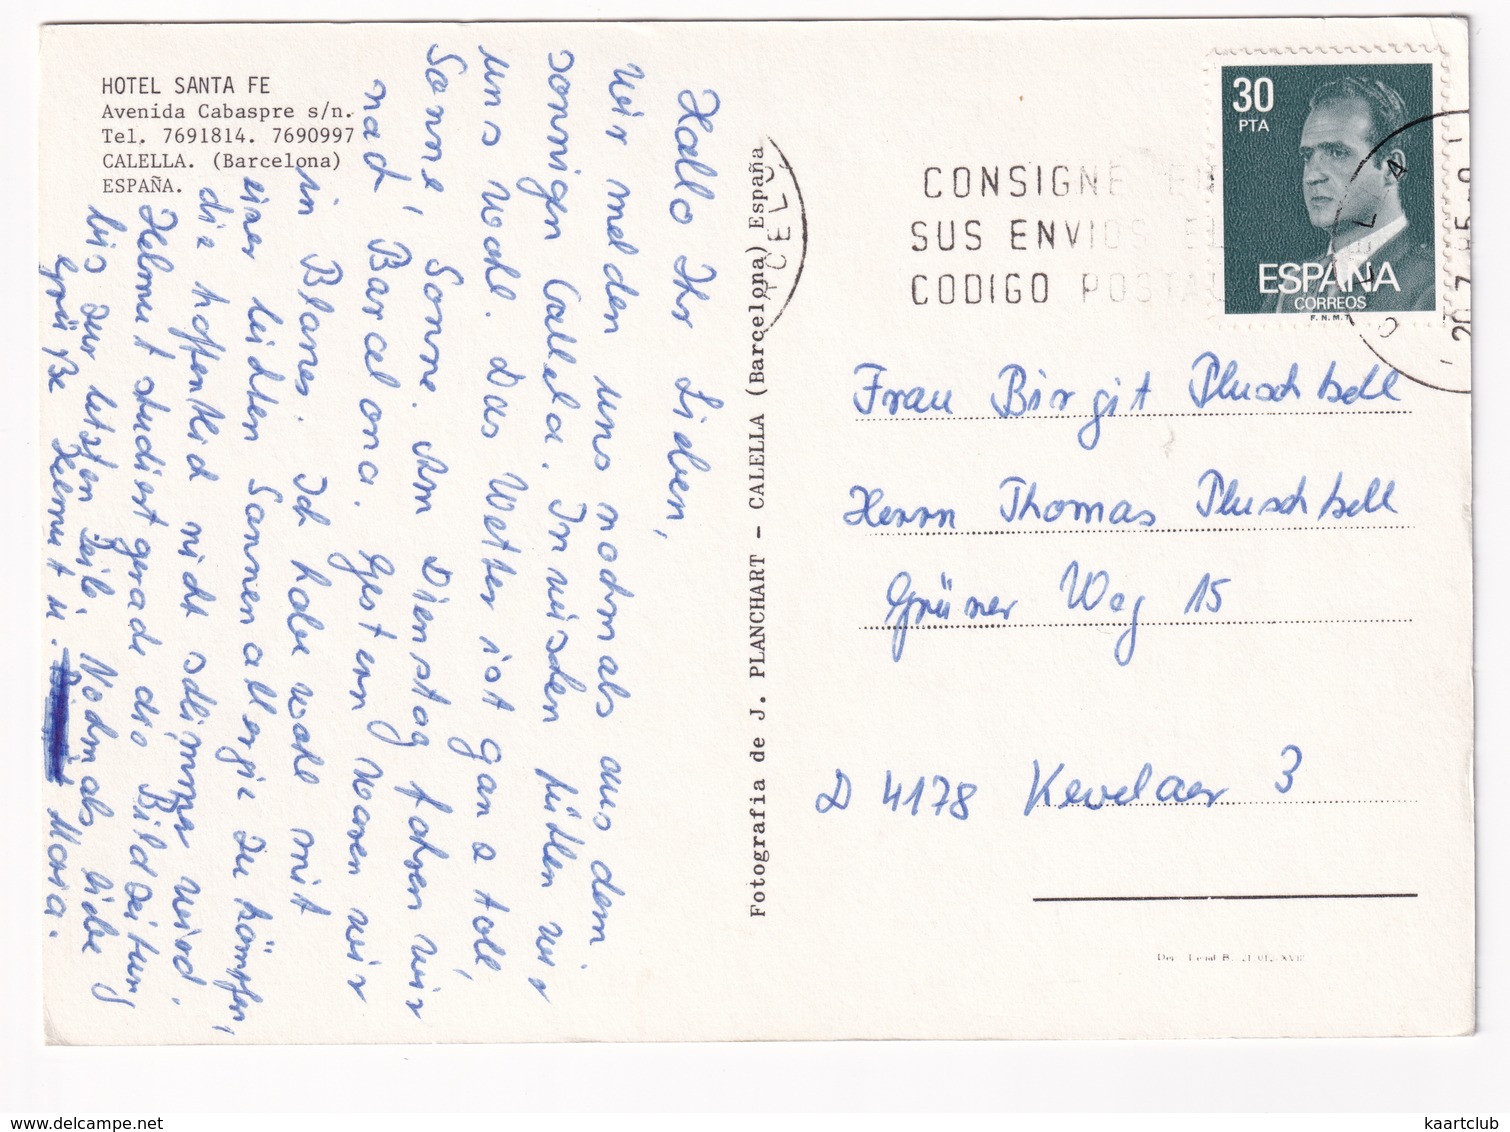 HOTEL SANTA FE
Avenida Cabaspre s/n.
Tel. 7691814. 7690997
CALELLA. (Barcelona)
ESPAÑA.
Hallo Ihr Lieben,
wir melden uns nochmals aus dem
sonnigen Calella. Inzwischen fühlen wir
uns wohl. Das Wetter ist ganz toll,
Sonne, Sonne. Am Dienstag fahren wir
nach Barcelona. Gestern waren wir
in Blanes. Ich habe wohl mit
einer leichten Sonnenallergie zu kämpfen,
die hoffentlich nicht schlimmer wird.
Helmut studiert gerade die Bildzeitung
bis zur letzten Zeile. Nochmals liebe
Grüße Helmut u. Maria.
Fotografia de J. PLANCHART - CALELLA (Barcelona) España
CONSIGNE EN
SUS ENVIOS EL
CODIGO POSTAL
30
PTA
ESPAÑA
CORREOS
F.N.M.T.
Frau Birgit Pluschkell
Herrn Thomas Pluschkell
Grüner Weg 15
D 4178 Kevelaer 3
kaartclub